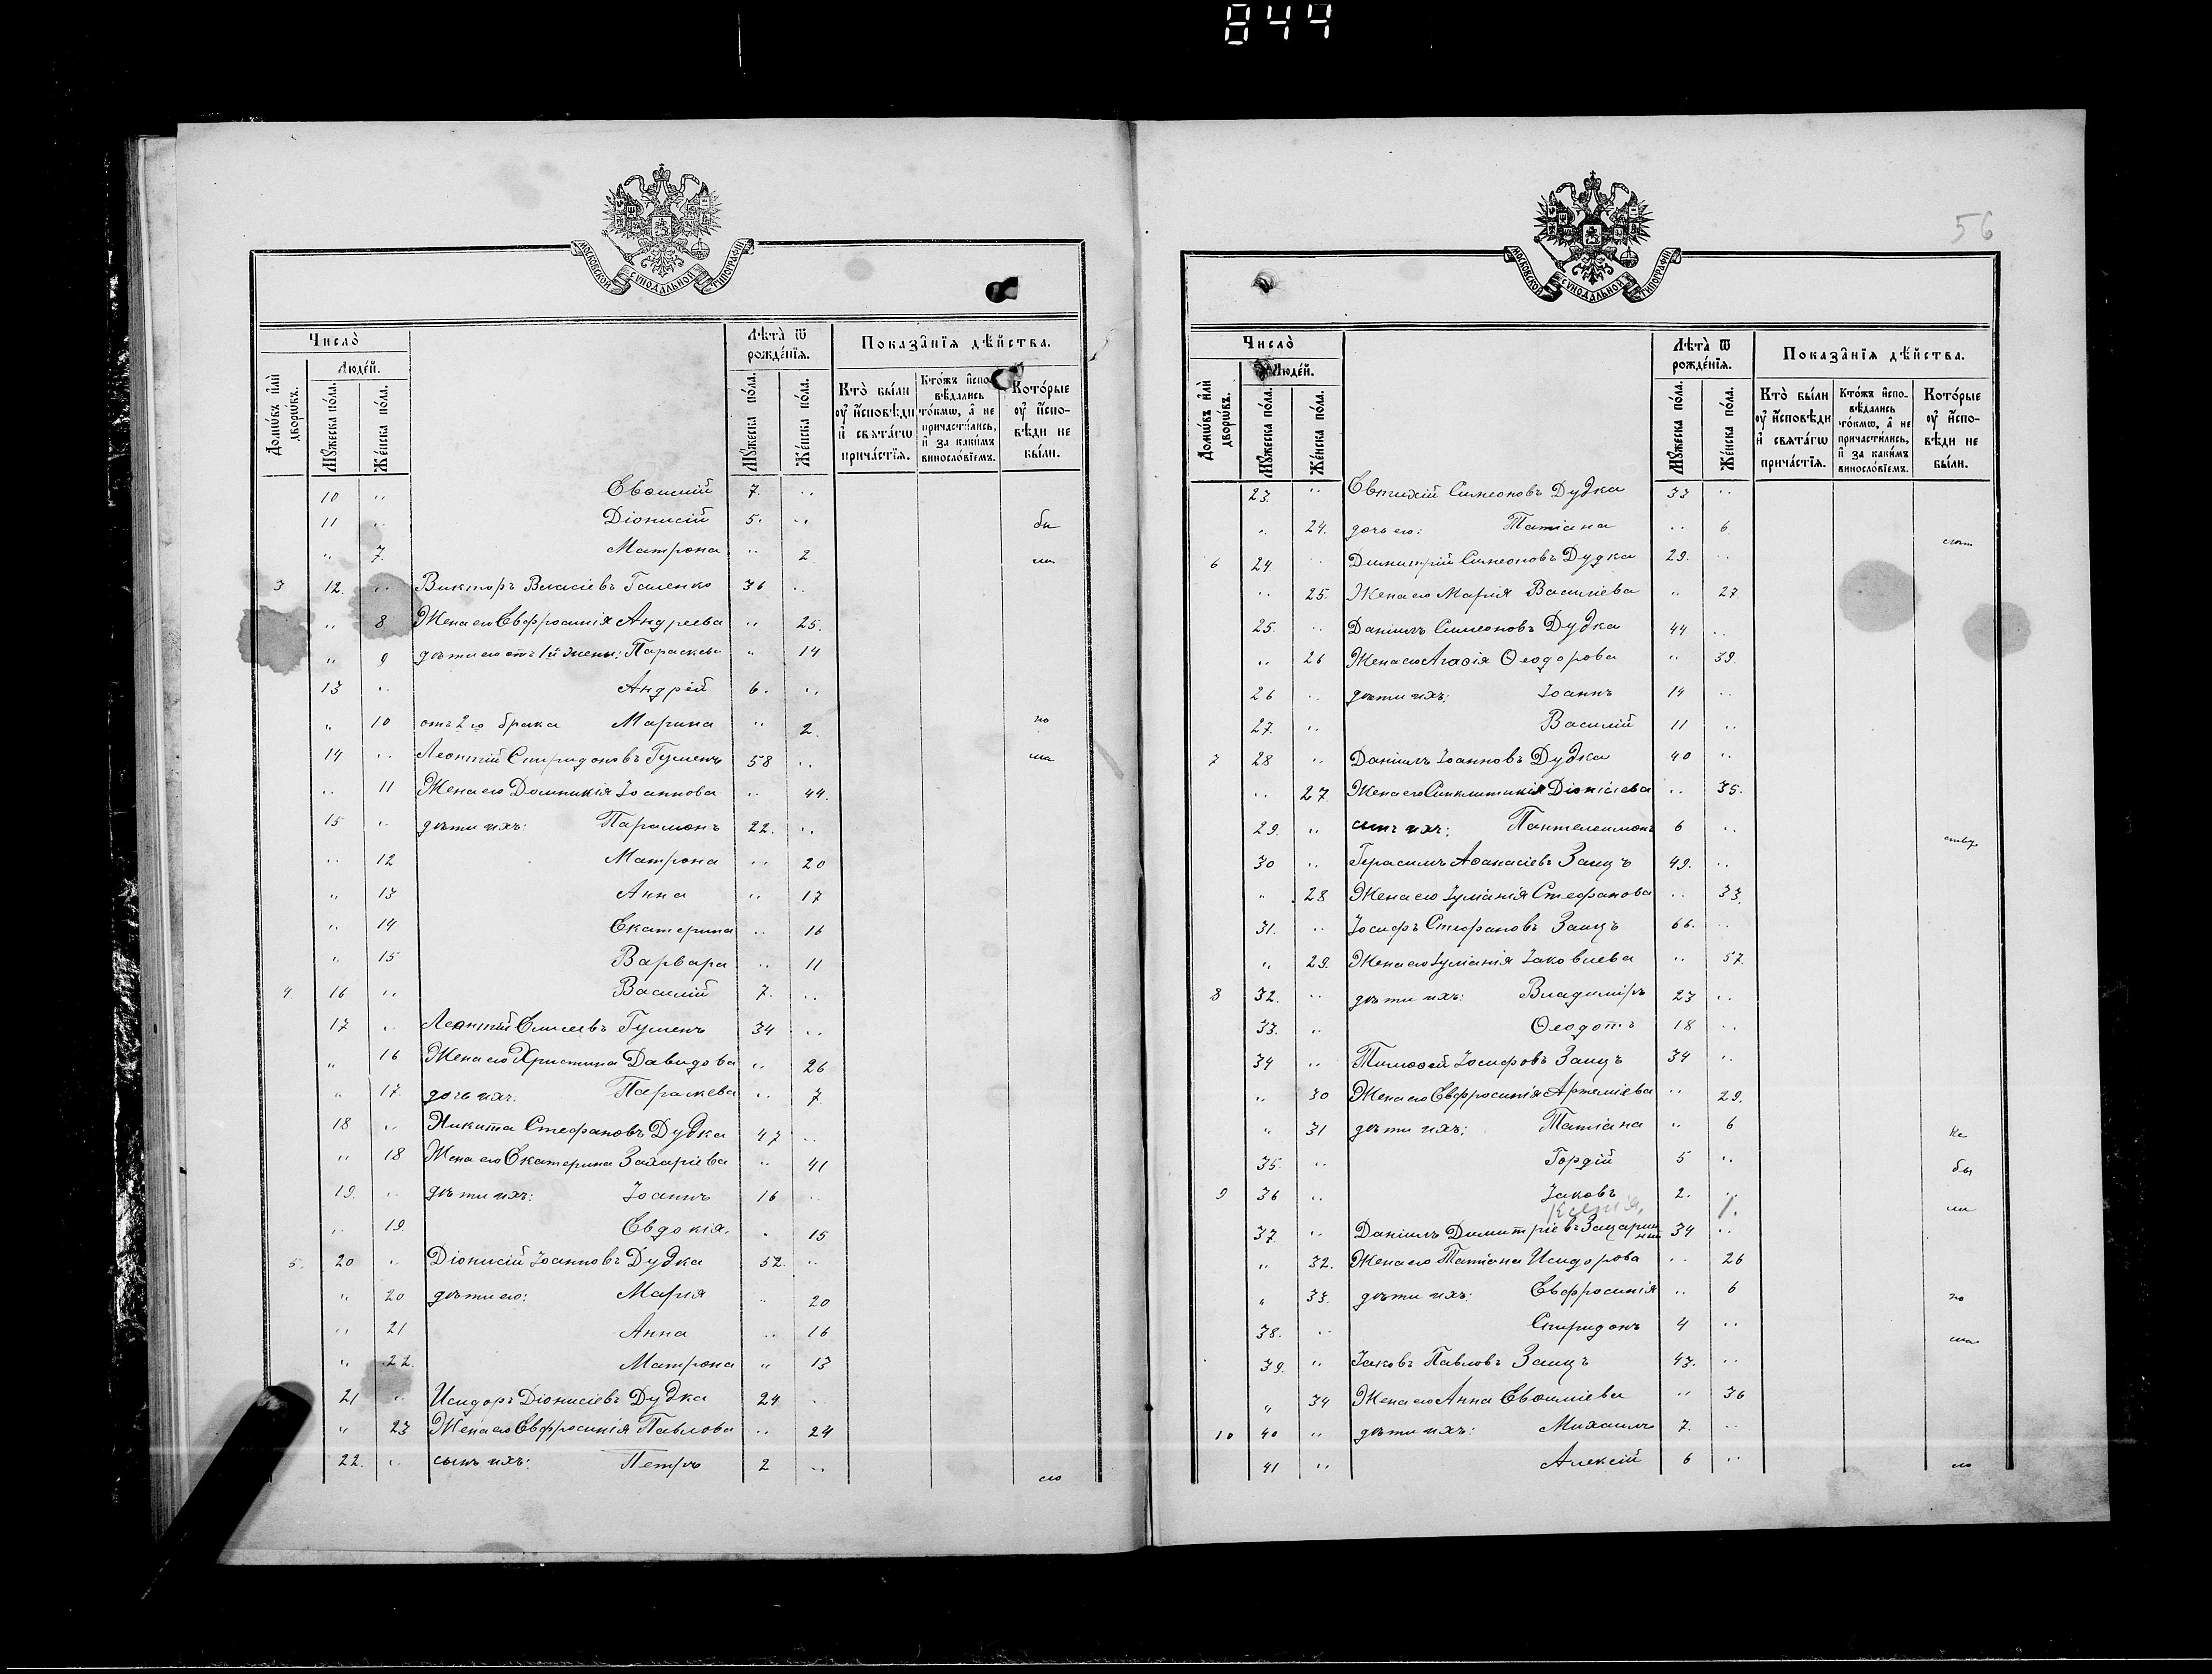 844
МОСКОВСКОЙ СѴНОДАЛЬНОЙ ТИПОГРАФІИ
Число̀
Людéй.
Домѡ́въ и҆лѝ дворѡ́въ.
Мꙋ́жеска по́ла.
Же́нска по́ла.
Лѣ́та ѿ рожде́нїѧ.
Мꙋ́жеска по́ла.
Же́нска по́ла.
Показа̑нїѧ дѣ́йства.
Кто̀ бы́ли ᲂу҆ и҆́сповѣди и҆ свѧта́гѡ прича́стїѧ.
Кто́жъ и҆спо-вѣ́дались то́кмѡ, а҆ не причасти́лись, и҆ за каки́мъ винослѡ́вїемъ.
Кото́рые ᲂу҆ и҆́спо-вѣди не бы́ли.
10 " Евѳимій 7. "
11 " Діонисій 5. " бы
" 7 Матрона " 2 ли
3 12. " Викторъ Власіевъ Галенко 36 "
" 8 Жена его Евфросинія Андреева " 25.
" 9 дѣти его отъ 1й жены: Параскева " 14
13 " Андрей 6. "
" 10 отъ 2го брака Марина " 2. по
14 " Леонтій Спиридоновъ Гуменъ 58 "
" 11 Жена его Домникія Іоаннова " 44.
15 " дѣти ихъ: Парамонъ 22. "
" 12 Матрона " 20
" 13 Анна " 17
" 14 Екатерина " 16
" 15 Варвара " 11
4 16 " Василій 7. "
17 " Леонтій Елисеевъ Гуменъ 34 "
" 16 Жена его Христина Давидова " 26
" 17 дочь ихъ: Параскева " 7
18 " Никита Стефановъ Дудка 47 "
" 18 Жена его Екатерина Захаріева " 41
19. " дѣти ихъ: Іоаннъ 16 "
" 19 Евдокія. " 15
5. 20 " Діонисій Іоанновъ Дудка 52. "
" 20 дѣти его: Марія " 20
" 21 Анна " 16
" 22. Матрона " 13
21 " Исидоръ Діонисіевъ Дудка 24 "
" 23 Жена его Евфросинія Павлова " 24
22. " сынъ ихъ: Петръ 2 " его
56
МОСКОВСКОЙ СѴНОДАЛЬНОЙ ТИПОГРАФІИ
Число̀
Людéй.
Домѡ́въ и҆лѝ дворѡ́въ.
Мꙋ́жеска по́ла.
Же́нска по́ла.
Лѣ́та ѿ рожде́нїѧ.
Мꙋ́жеска по́ла.
Же́нска по́ла.
Показа̑нїѧ дѣ́йства.
Кто̀ бы́ли ᲂу҆ и҆́сповѣди и҆ свѧта́гѡ прича́стїѧ.
Кто́жъ и҆спо-вѣ́дались то́кмѡ, а҆ не причасти́лись, и҆ за каки́мъ винослѡ́вїемъ.
Кото́рые ᲂу҆ и҆́спо-вѣди не бы́ли.
23. " Евтихій Симеоновъ Дудка 33 "
" 24. дочь его: Татіана " 6
6 24 " Димитрій Симеоновъ Дудка 29. "
" 25. Жена его Марія Василіева " 27
25. " Даніилъ Симеоновъ Дудка 44 "
" 26 Жена его Агаѳія Ѳеодорова " 39.
26 " дѣти ихъ: Іоаннъ 14 "
27. " Василій 11 "
7 28 " Даніилъ Іоанновъ Дудка 40 "
" 27 Жена его Синклитикія Діонісіева " 35.
29. " сынъ ихъ: Пантелеимонъ 6 "
30 " Герасимъ Аѳанасіевъ Заицъ 49. "
" 28 Жена его Іуліанія Стефанова " 33.
31. " Іосифъ Стефановъ Заицъ 66. "
" 29. Жена его Іуліанія Іаковлева " 57.
8 32. " дѣти ихъ: Владиміръ 23 "
33. " Ѳеодотъ 18 "
34 " Тимоѳей Іосифовъ Заицъ 34 "
" 30 Жена его Евфросинія Артеміева " 29.
" 31 дѣти ихъ: Татіана " 6 не
35. " Гордій 5 " бы
9 36 " Іаковъ 2. " ли
Ксенія, 1.
37. " Даніилъ Димитріевъ 34 "
" 32. Жена его Татіана Исидорова " 26
" 33. дѣти ихъ: Евфросинія " 6 по
38. " Спиридонъ 4 "
39. " Іаковъ Павловъ Заицъ 43. "
" 34 Жена его Анна Евѳиміева " 36
10 40 " дѣти ихъ: Михаилъ 7. "
41 " Алексій 6 " его